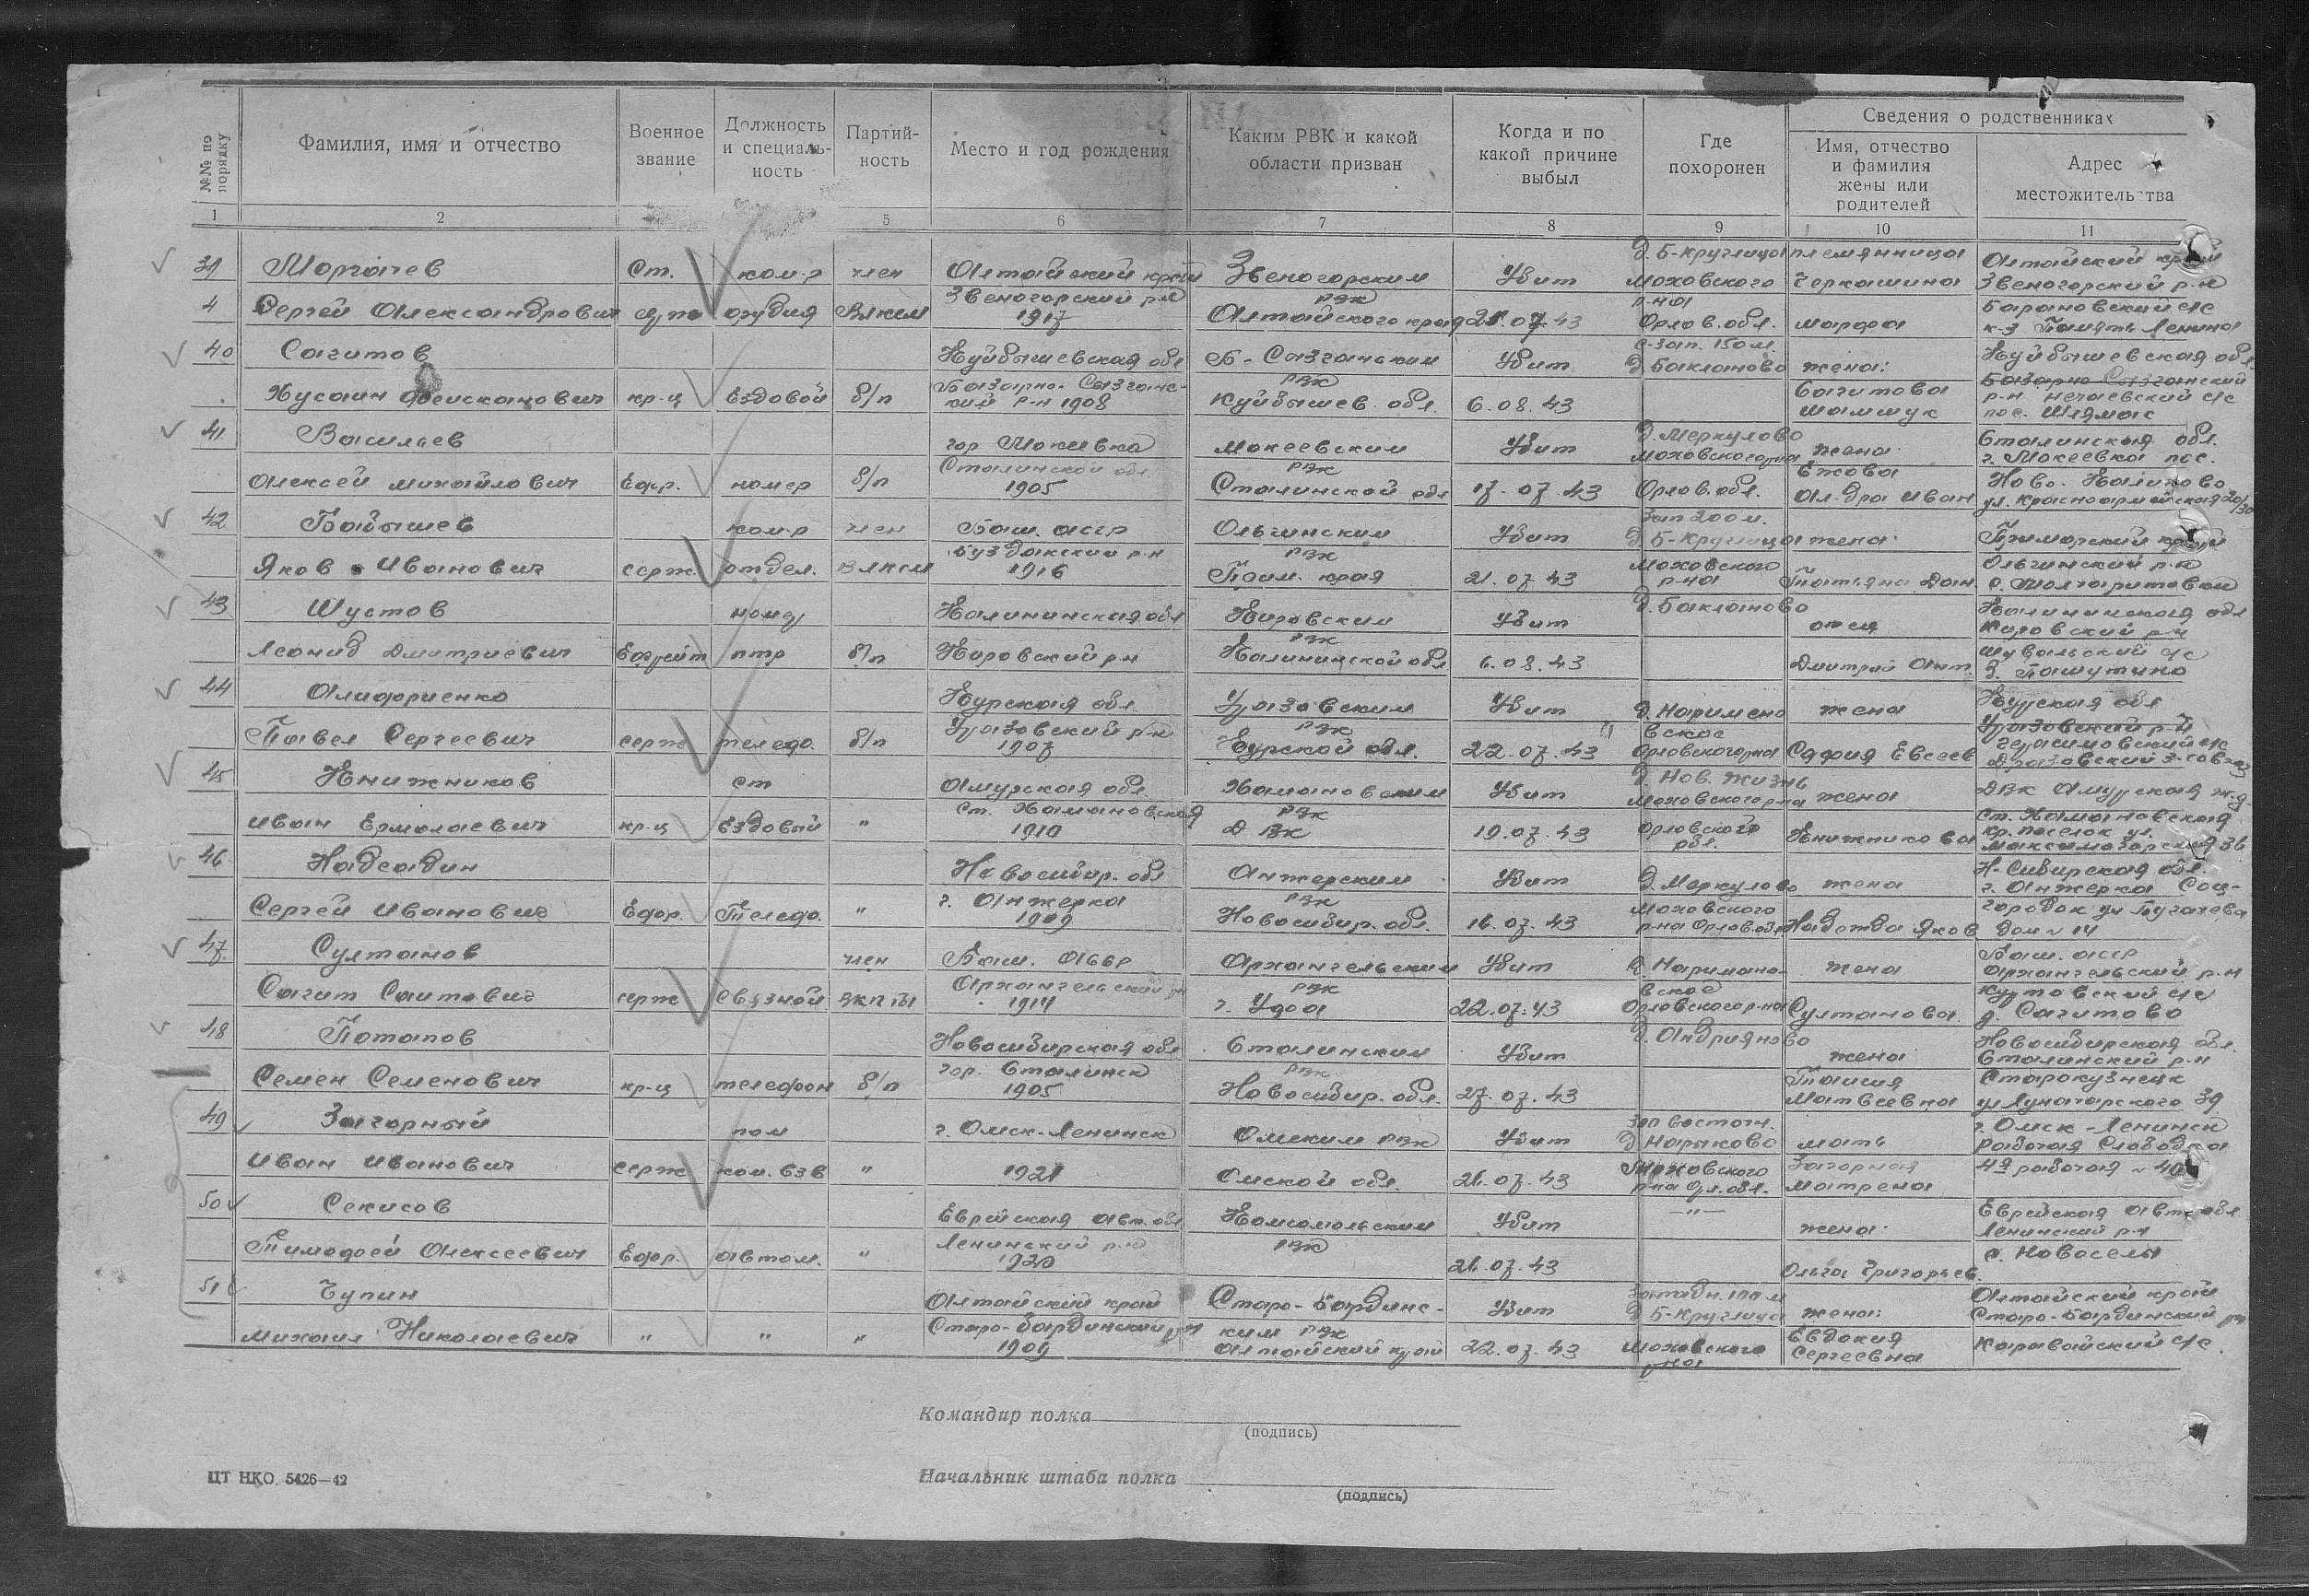 №№ по порядку
Фамилия, имя и отчество
Военное звание
Должность и специаль-ность
Партий-ность
Место и год рождения
Каким РВК и какой области призван
Когда и по какой причине выбыл
Где похоронен
Сведения о родственниках
Имя, отчество и фамилия жены или родителей
Адрес местожительства
1 2 5 6 7 8 9 10 11
39 Моргачев Ст. ком-р член Алтайский край Звеногорским Убит д. Б-Круглица племянница Алтайский край
Сергей Александрович орудия ВЛКСМ Звеногорский р-н 1917 РВК Алтайского края 21.07.43 Моховского р-на Орлов. обл. Черкашина Марфа Звеногорский р-н Барановский с/с к-з Память Ленина
40 Сагитов Куйбышевская обл Б-Сызганским Убит с-зап. 150 м. жена: Куйбышевская обл.
Хусаин кр-ц Ездовой б/п Базарно-Сызганс-кий р-н 1908 РВК Куйбышев. обл. 6.08.43 д. Бакланово Сагитова Шамшук Базарно Сызганский р-н с/с пос.
41 Васильев гор Макеевка Макеевским Убит д. Меркулово жена Сталинская обл.
Алексей Михайлович Ефр. номер б/п Сталинской обл 1905 РВК Сталинской обл 17.07.43 Моховского р-на Орлов. обл. Ежова Ал-дра Иван г. Макеевка пос. Ново-Калиново ул. Красноармейская 20/30
42 Бабышев ком-р член Баш. АССР Ольгинским Убит Зап 200 м. жена Приморский край
Яков Иванович серж. отдел. ВЛКСМ Буздякский р-н 1916 РВК Прим. края 21.07.43 д. Б-Круглица Моховского р-на Татьяна Дан. Ольгинский р-н с.
43 Шустов номер Калининская обл Кировским Убит д. Бакланово отец Калининская обл
Леонид Дмитриевич Ефрейт птр б/п Кировский р-н РВК Калининской обл 6.08.43 Дмитрий Ант. Кировский р-н с/с д. Пашутино
44 Алифриенко Курская обл Уразовским Убит д. Наримано жена Курская обл
Павел Сергеевич серж телефо. б/п Уразовский р-н 1907 РВК Курской обл. 22.07.43 вское Орловского р-на София Евсеев Уразовский р-н Герасимовский с/с
45 Книжников ст Амурская обл Хамановским Убит д. Нов. Жизнь жена ДВК Амурская ж.д.
Иван Ермолаевич кр-ц Ездовый " ст. Хамановская 1910 РВК ДВК 19.07.43 Моховского р-на Орловской обл. Книжникова ст. Хамановская кр. поселок ул. 36
46 Надсадин Новосибир. обл Анжерским Убит д. Меркулово жена Н-Сибирская обл.
Сергей Иванович Ефр. Телефо. " г. Анжерка 1909 РВК Новосибир. обл. 16.07.43 Моховского р-на Орлов обл Надежда Яков г. Анжерка Соц-городок ул Пугачева дом № 14
47 Султанов член Баш. АССР Архангельским Убит д. Наримано- жена Баш. АССР
Сагит Саитович серж связной ВКП(б) Архангельский р-н 1914 РВК г. Уфа 22.07.43 вское Орловского р-на Султанова Архангельский р-н с/с д. Сагитово
48 Потапов Новосибирская обл Сталинским Убит д. Андрияново жена Новосибирская обл.
Семен Семенович кр-ц телефон б/п гор. Сталинск 1905 РВК Новосибир. обл. 27.07.43 Таисия Матвеевна Сталинский р-н Старокузнецк ул Луначарского 39
49 Загорный пом г. Омск-Ленинск Омским РВК Убит д. Нарыково мать г. Омск-Ленинск
Иван Иванович серж ком. взв " 1921 Омской обл. 26.07.43 Моховского р-на Ор. обл. Загорная Матрена рабочая Слободка 4я рабочая № 40
50 Секисов Еврейская авт. обл Комсомольским Убит —"— жена Еврейская авт. обл
Тимофей Алексеевич Ефр. автом. " Ленинский р-н 1920 РВК 26.07.43 Ольга Григорьев. Ленинский р-н с. Новоселы
51 Чупин Алтайский край Старо-Бардинс- Убит д Б-Круглица жена: Алтайский край
Михаил Николаевич " " " Старо-Бардинский р-н 1909 ким РВК Алтайский край 22.07.43 Моховского р-на Евдокия Сергеевна Старо-Бардинский р-н Каравайский с/с.
Командир полка
(подпись)
ЦТ НКО. 5426—42
Начальник штаба полка
(подпись)